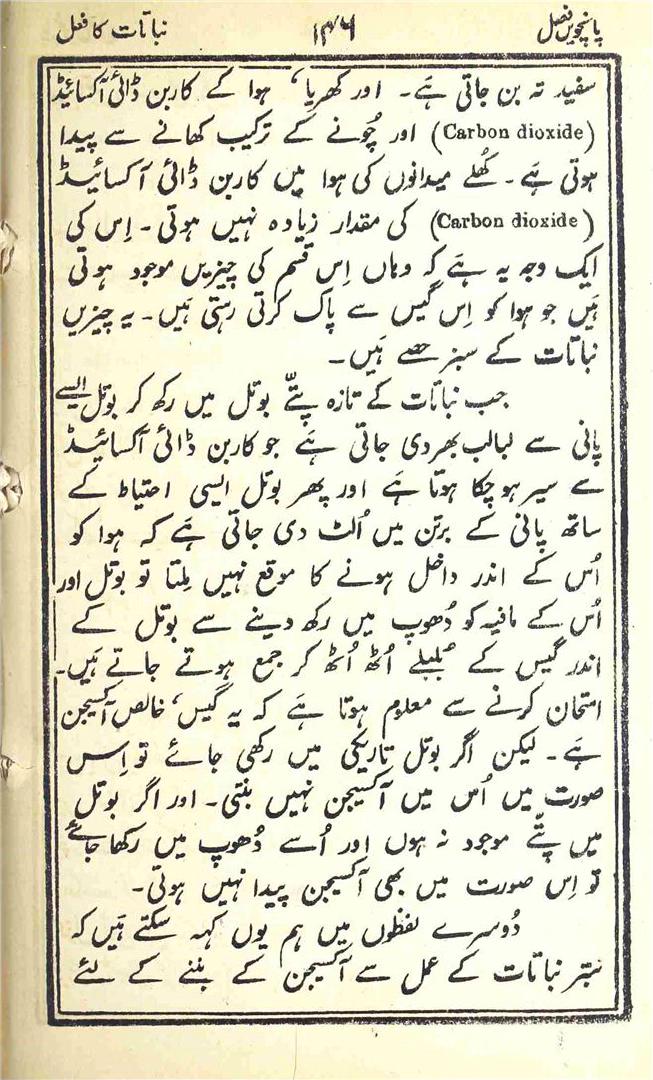 پانچویں فصل ۱۴۶ نباتات کا فعل
سفید تہ بن جاتی ہَے۔ اور کھریا، ہوا کے کاربن ڈائی آکسائیڈ
(Carbon dioxide) اور چُونے کے ترکیب کھانے سے پیدا
ہوتی ہَے۔ کھُلے میدانوں کی ہوا میں کاربن ڈائی آکسائیڈ
(Carbon dioxide) کی مقدار زیادہ نہیں ہوتی۔ اِس کی
ایک وجہ یہ ہَے کہ وہاں اِس قسم کی چیزیں موجود ہوتی
ہَیں جو ہوا کو اِس گیس سے پاک کرتی رہتی ہَیں۔ یہ چیزیں
نباتات کے سبز حصے ہَیں۔
جب نباتات کے تازہ پتّے بوتل میں رکھ کر بوتل ایسے
پانی سے لبالب بھر دی جاتی ہَے جو کاربن ڈائی آکسائیڈ
سے سیر ہو چکا ہوتا ہَے اور پھر بوتل ایسی احتیاط کے
ساتھ پانی کے برتن میں اُلٹ دی جاتی ہَے کہ ہوا کو
اُس کے اندر داخل ہونے کا موقع نہیں مِلتا تو بوتل اور
اُس کے مافیہ کو دُھوپ میں رکھ دینے سے بوتل کے
اندر گیس کے بُلبلے اُٹھ اُٹھ کر جمع ہوتے جاتے ہَیں۔
امتحان کرنے سے معلوم ہوتا ہَے کہ یہ گیس، خالص آکسیجن
ہَے۔ لیکن اگر بوتل تاریکی میں رکھی جائے تو اِس
صورت میں اُس میں آکسیجن نہیں بنتی۔ اور اگر بوتل
میں پتّے موجود نہ ہوں اور اُسے دُھوپ میں رکھا جائے
تو اِس صورت میں بھی آکسیجن پیدا نہیں ہوتی۔
دُوسرے لفظوں میں ہم یوں کہہ سکتے ہَیں کہ
سبز نباتات کے عمل سے آکسیجن کے بننے کے لئے